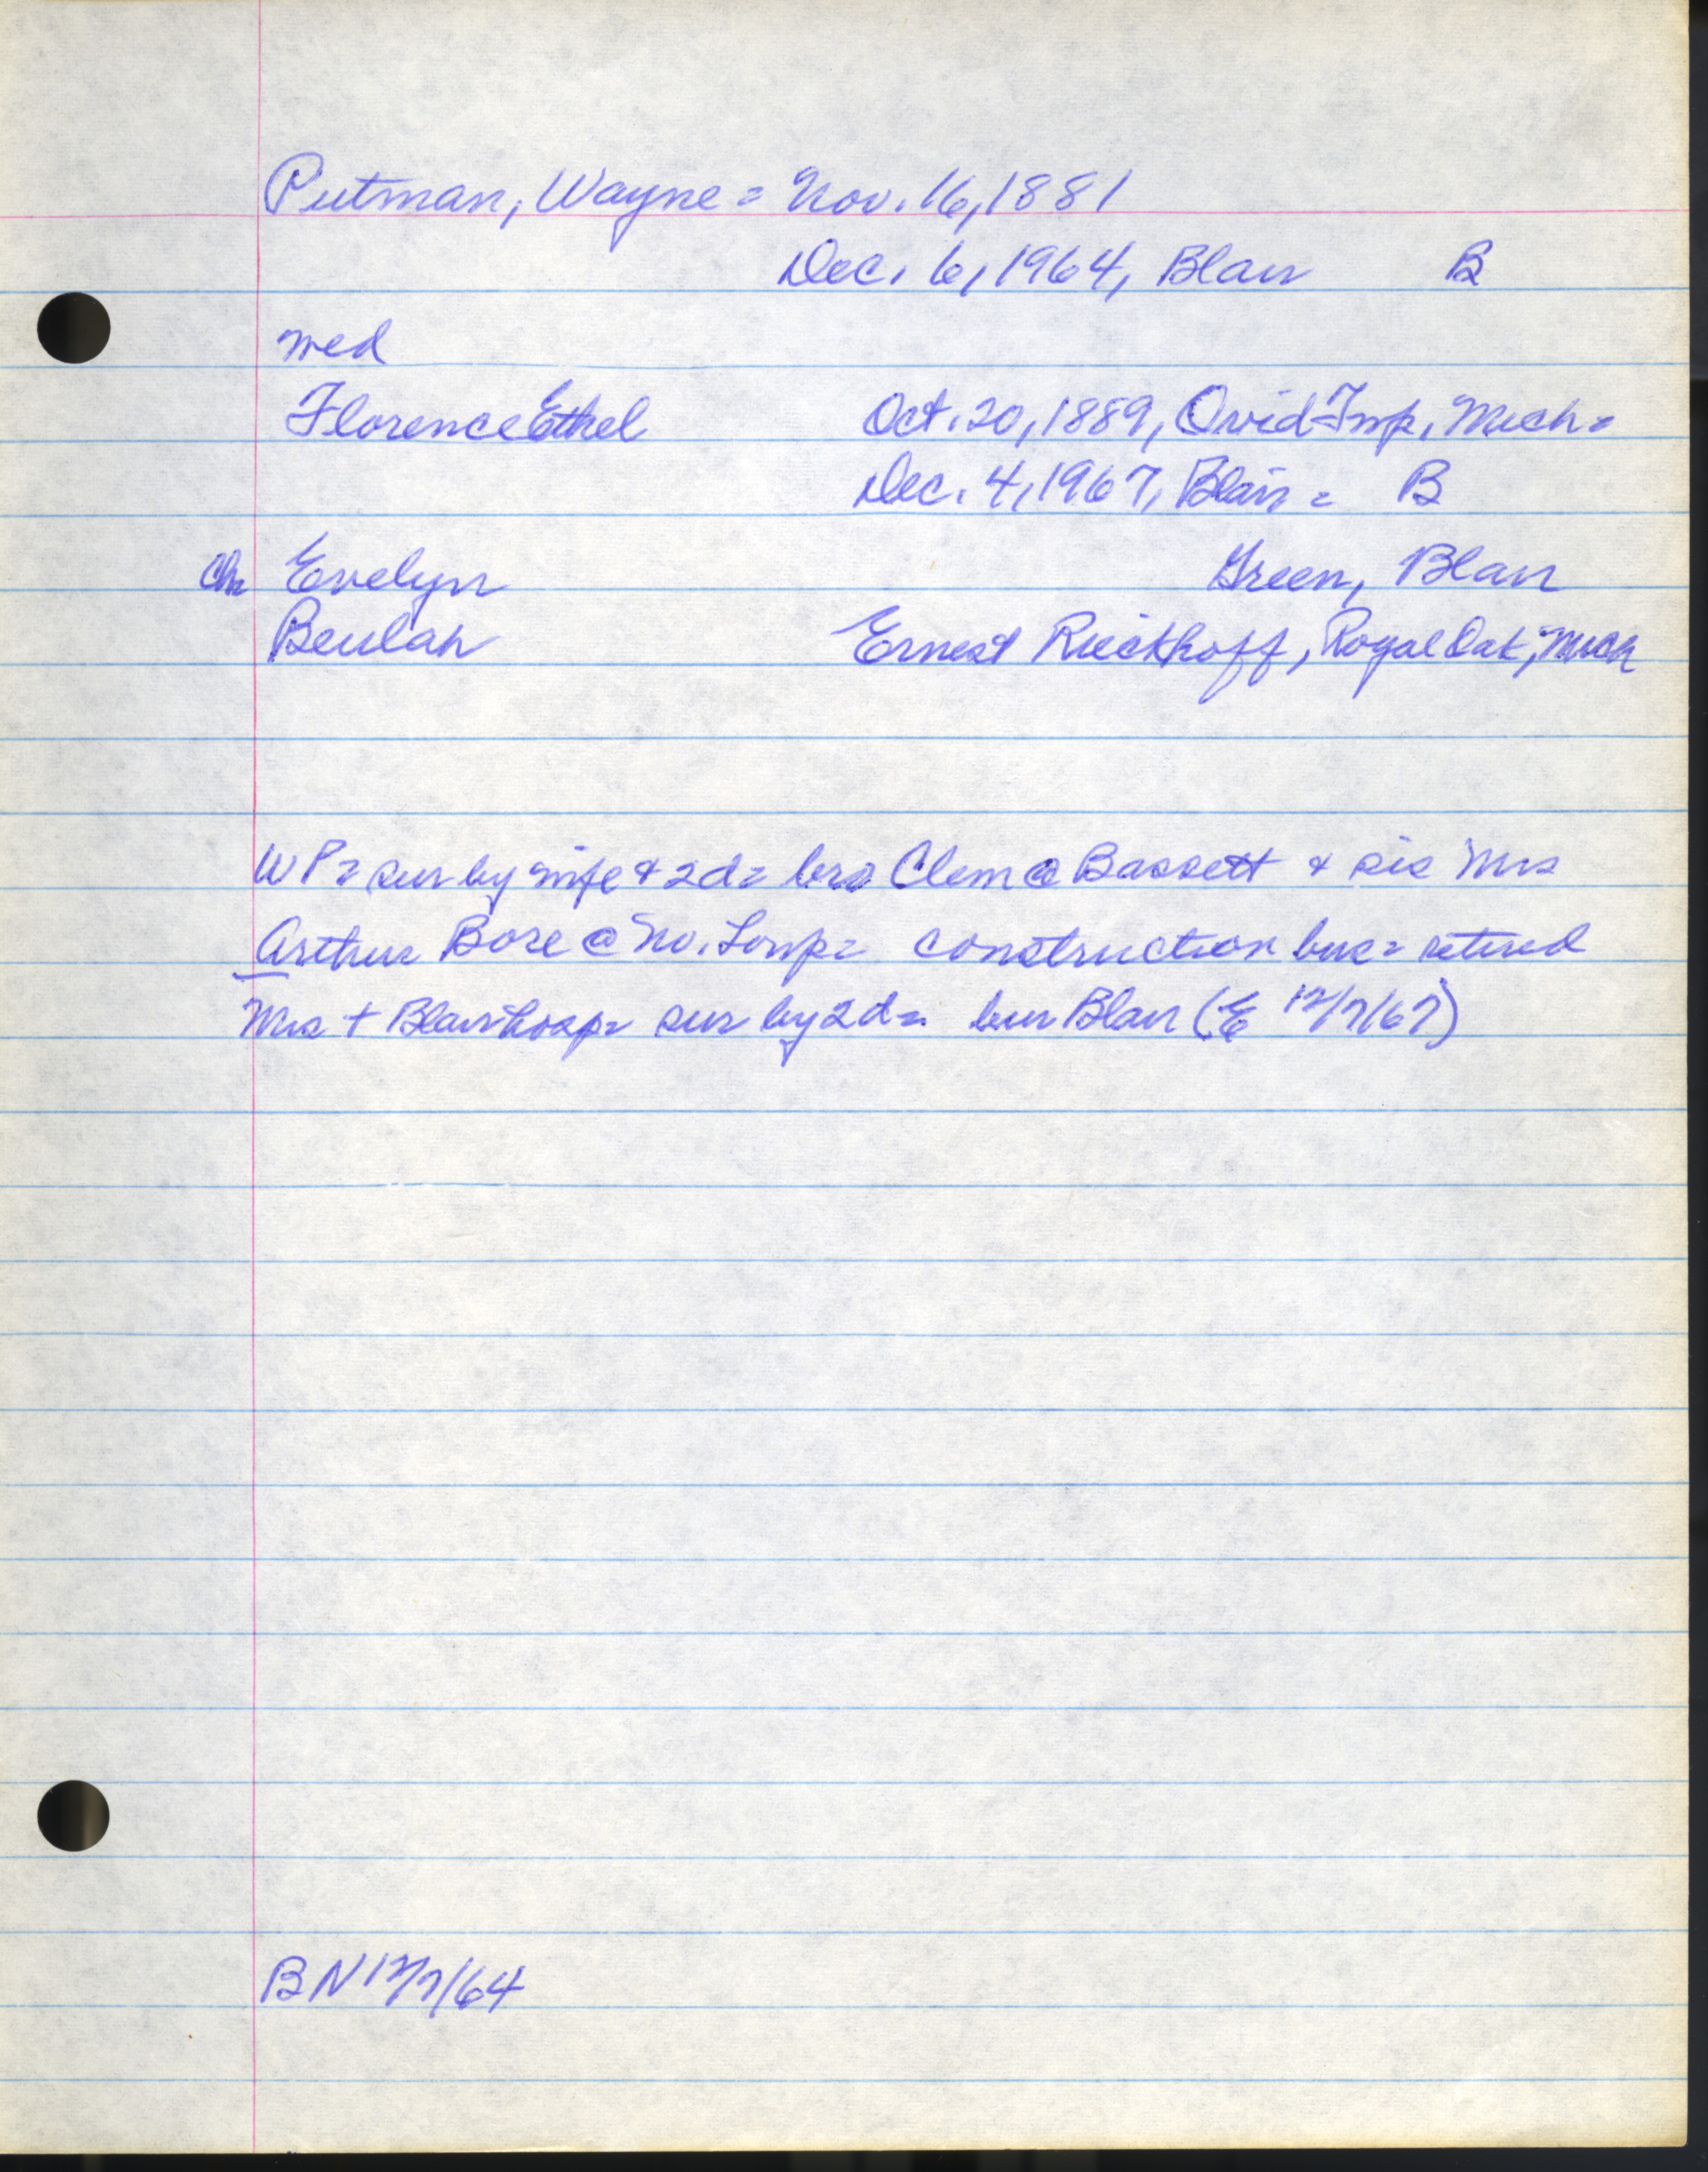 Putman, Wayne = Nov. 16, 1881
Dec. 6, 1964, Blair B
med
Florence Ethel Oct. 20, 1889, Ovid Twp, Mich =
Dec. 4, 1967, Blair = B
Ch Evelyn Green, Blair
Beulah Ernest Rieckhoff, Royal Oak, Mich
WP = sur by wife & 2d = bro Clem @ Bassett & sis Mrs
Arthur Bose @ No. Loup = construction bus = retired
Mrs + Blair hosp = sur by 2d = bur Blair (E 12/7/67)
BN 12/7/64